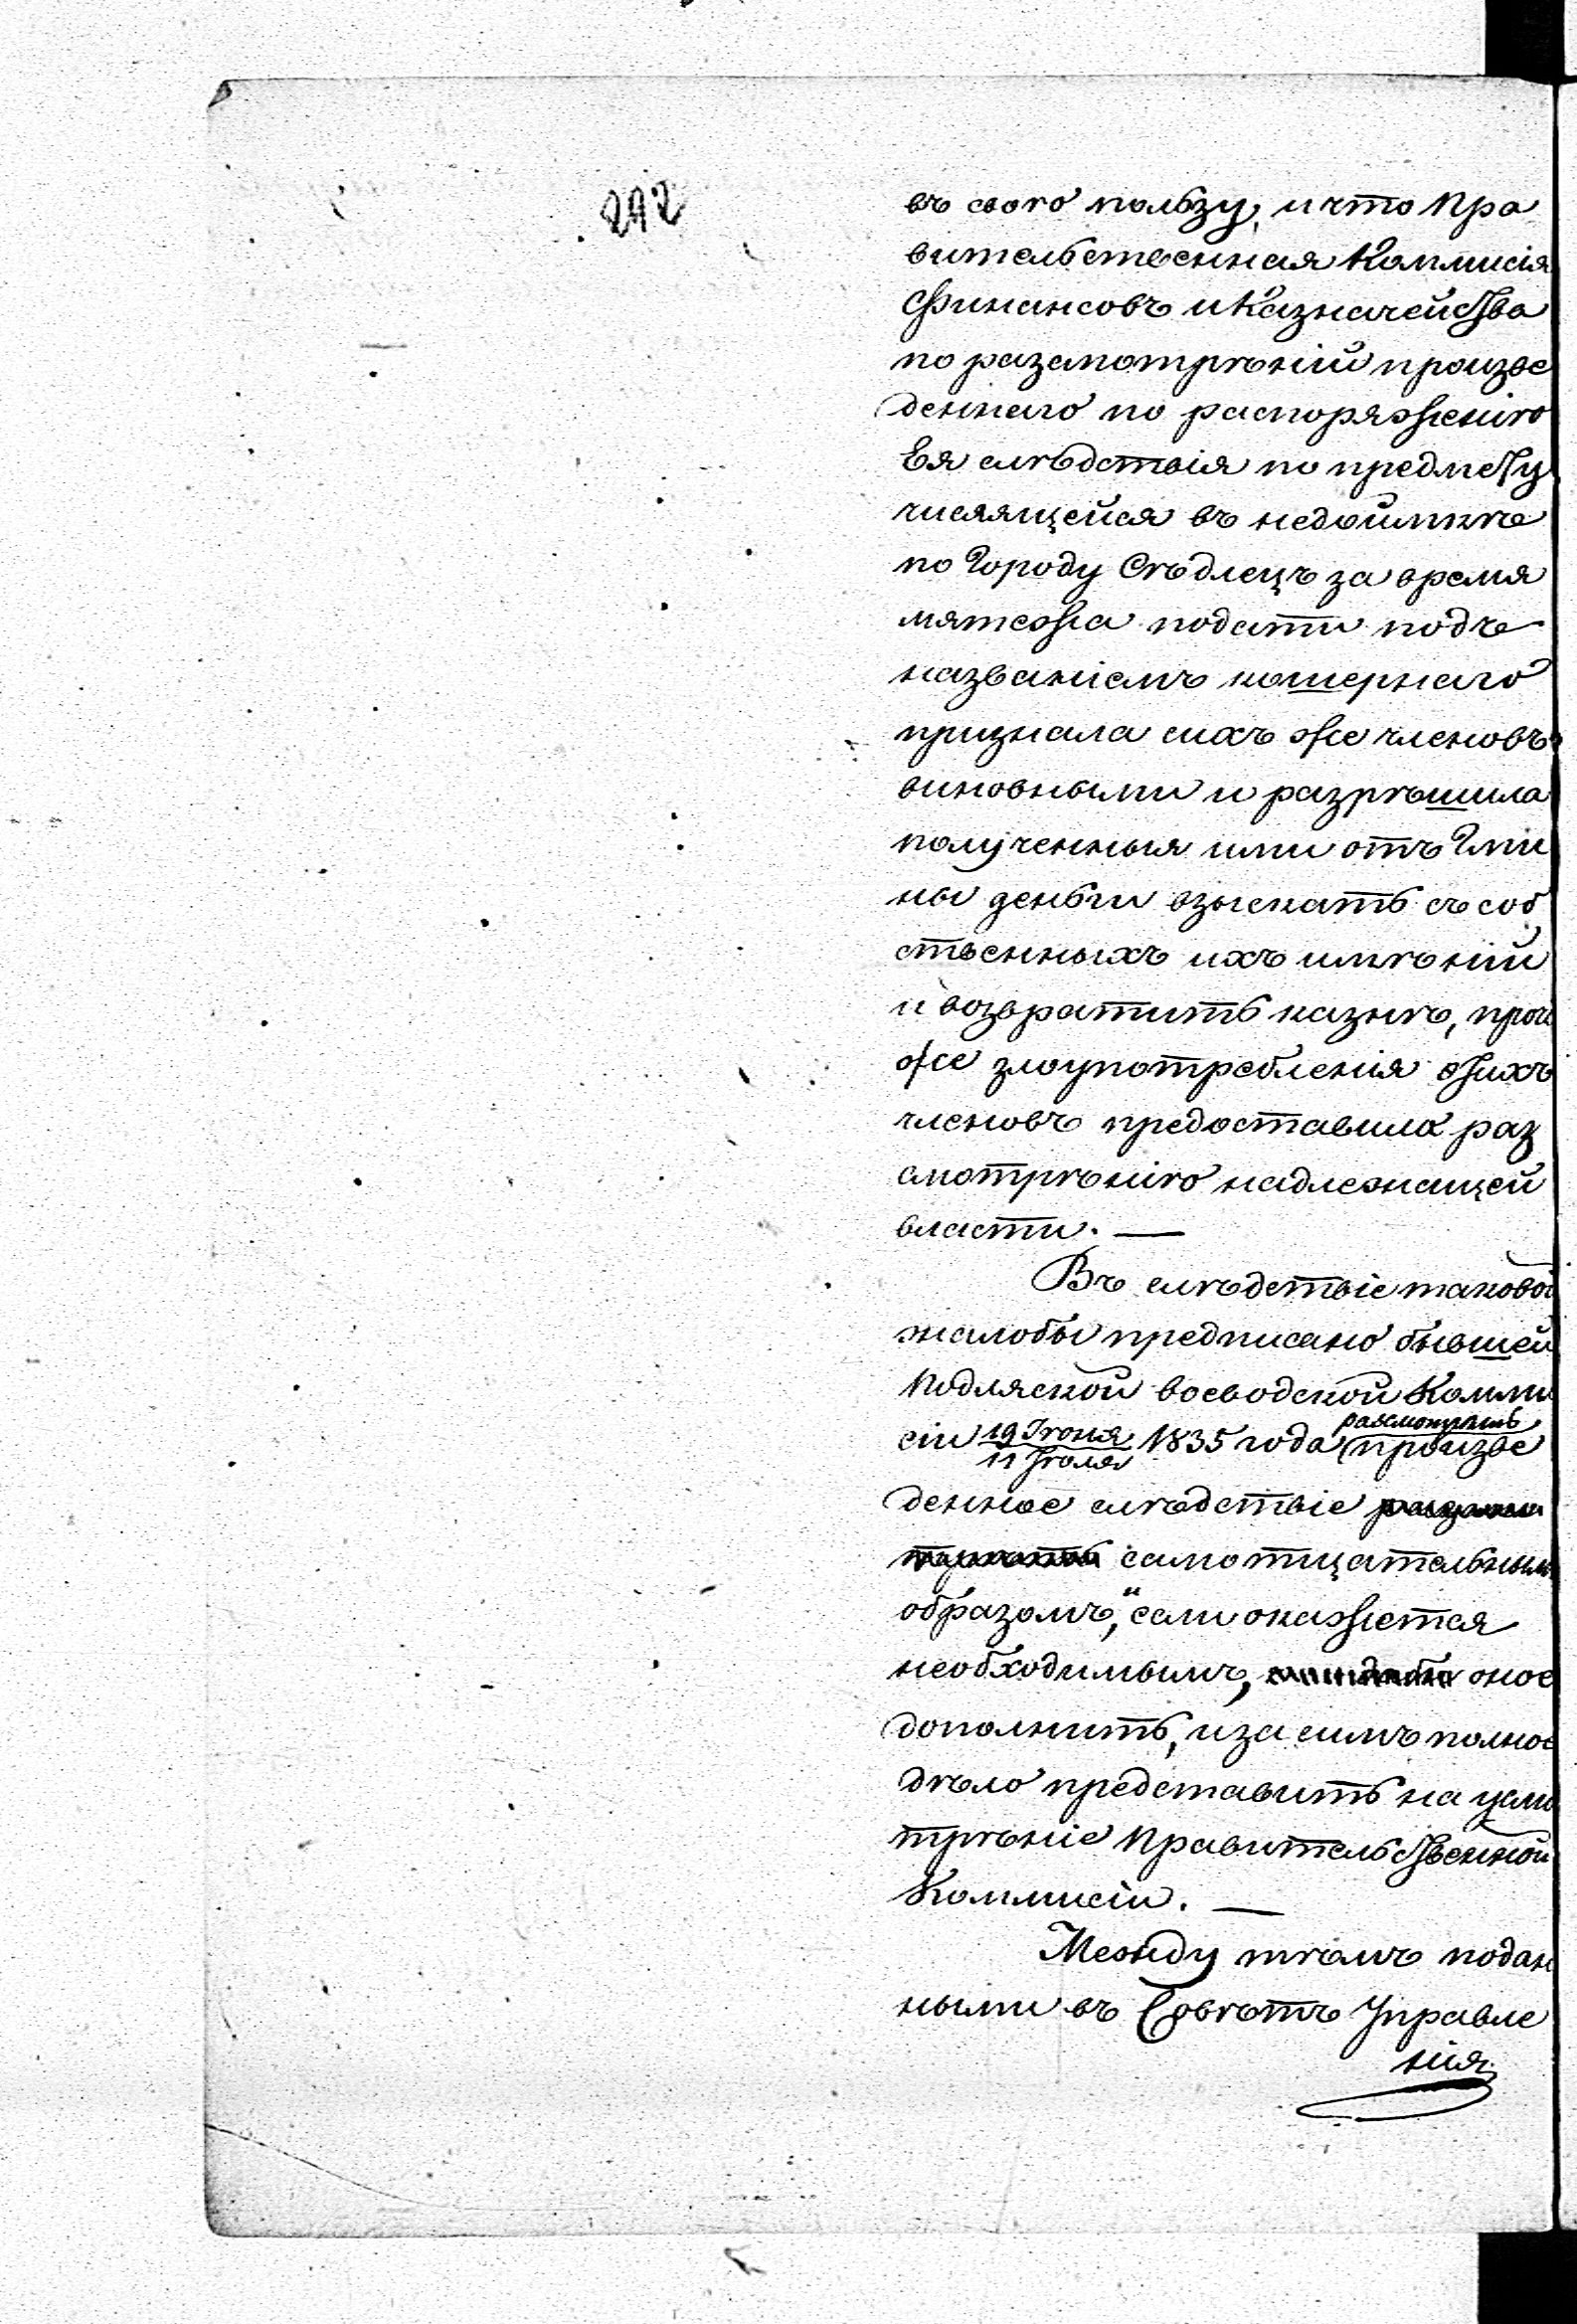 242
въ свою пользу, и что Пра
вительственная Коммисія
Финансовъ и Казначейства
по разсмотрѣній произве
деннаго по распоряженію
Ея слѣдствія по предмету
числящейся въ недоимкѣ
по Городу Сѣдлецъ за время
мятежа подати подъ
названіемъ кошернаго
признала сихъ же членовъ
виновными и разрѣшила
полученныя ими отъ Гми
ны деньги взыскать съ соб
ственныхъ ихъ имѣній
и возвратить казнѣ, проч
же злоупотребленія этихъ
членовъ предоставила раз
смотрѣнію надлежащей
власти. —
Въ слѣдствіе таковой
жалобы предписано бывшей
Подляской воеводской Комми
сіи 19 Іюня / 11 Іюля 1835 года разсмотрѣть произве
денное слѣдствіе
само тщательнымъ
образомъ, "если окажется
необходимымъ, оное
дополнить, и за симъ полное
дѣло представить на усмо
трѣніе Правительственной
Коммисіи. —
Между тѣмъ подан
ными въ Совѣтъ Управле
нія